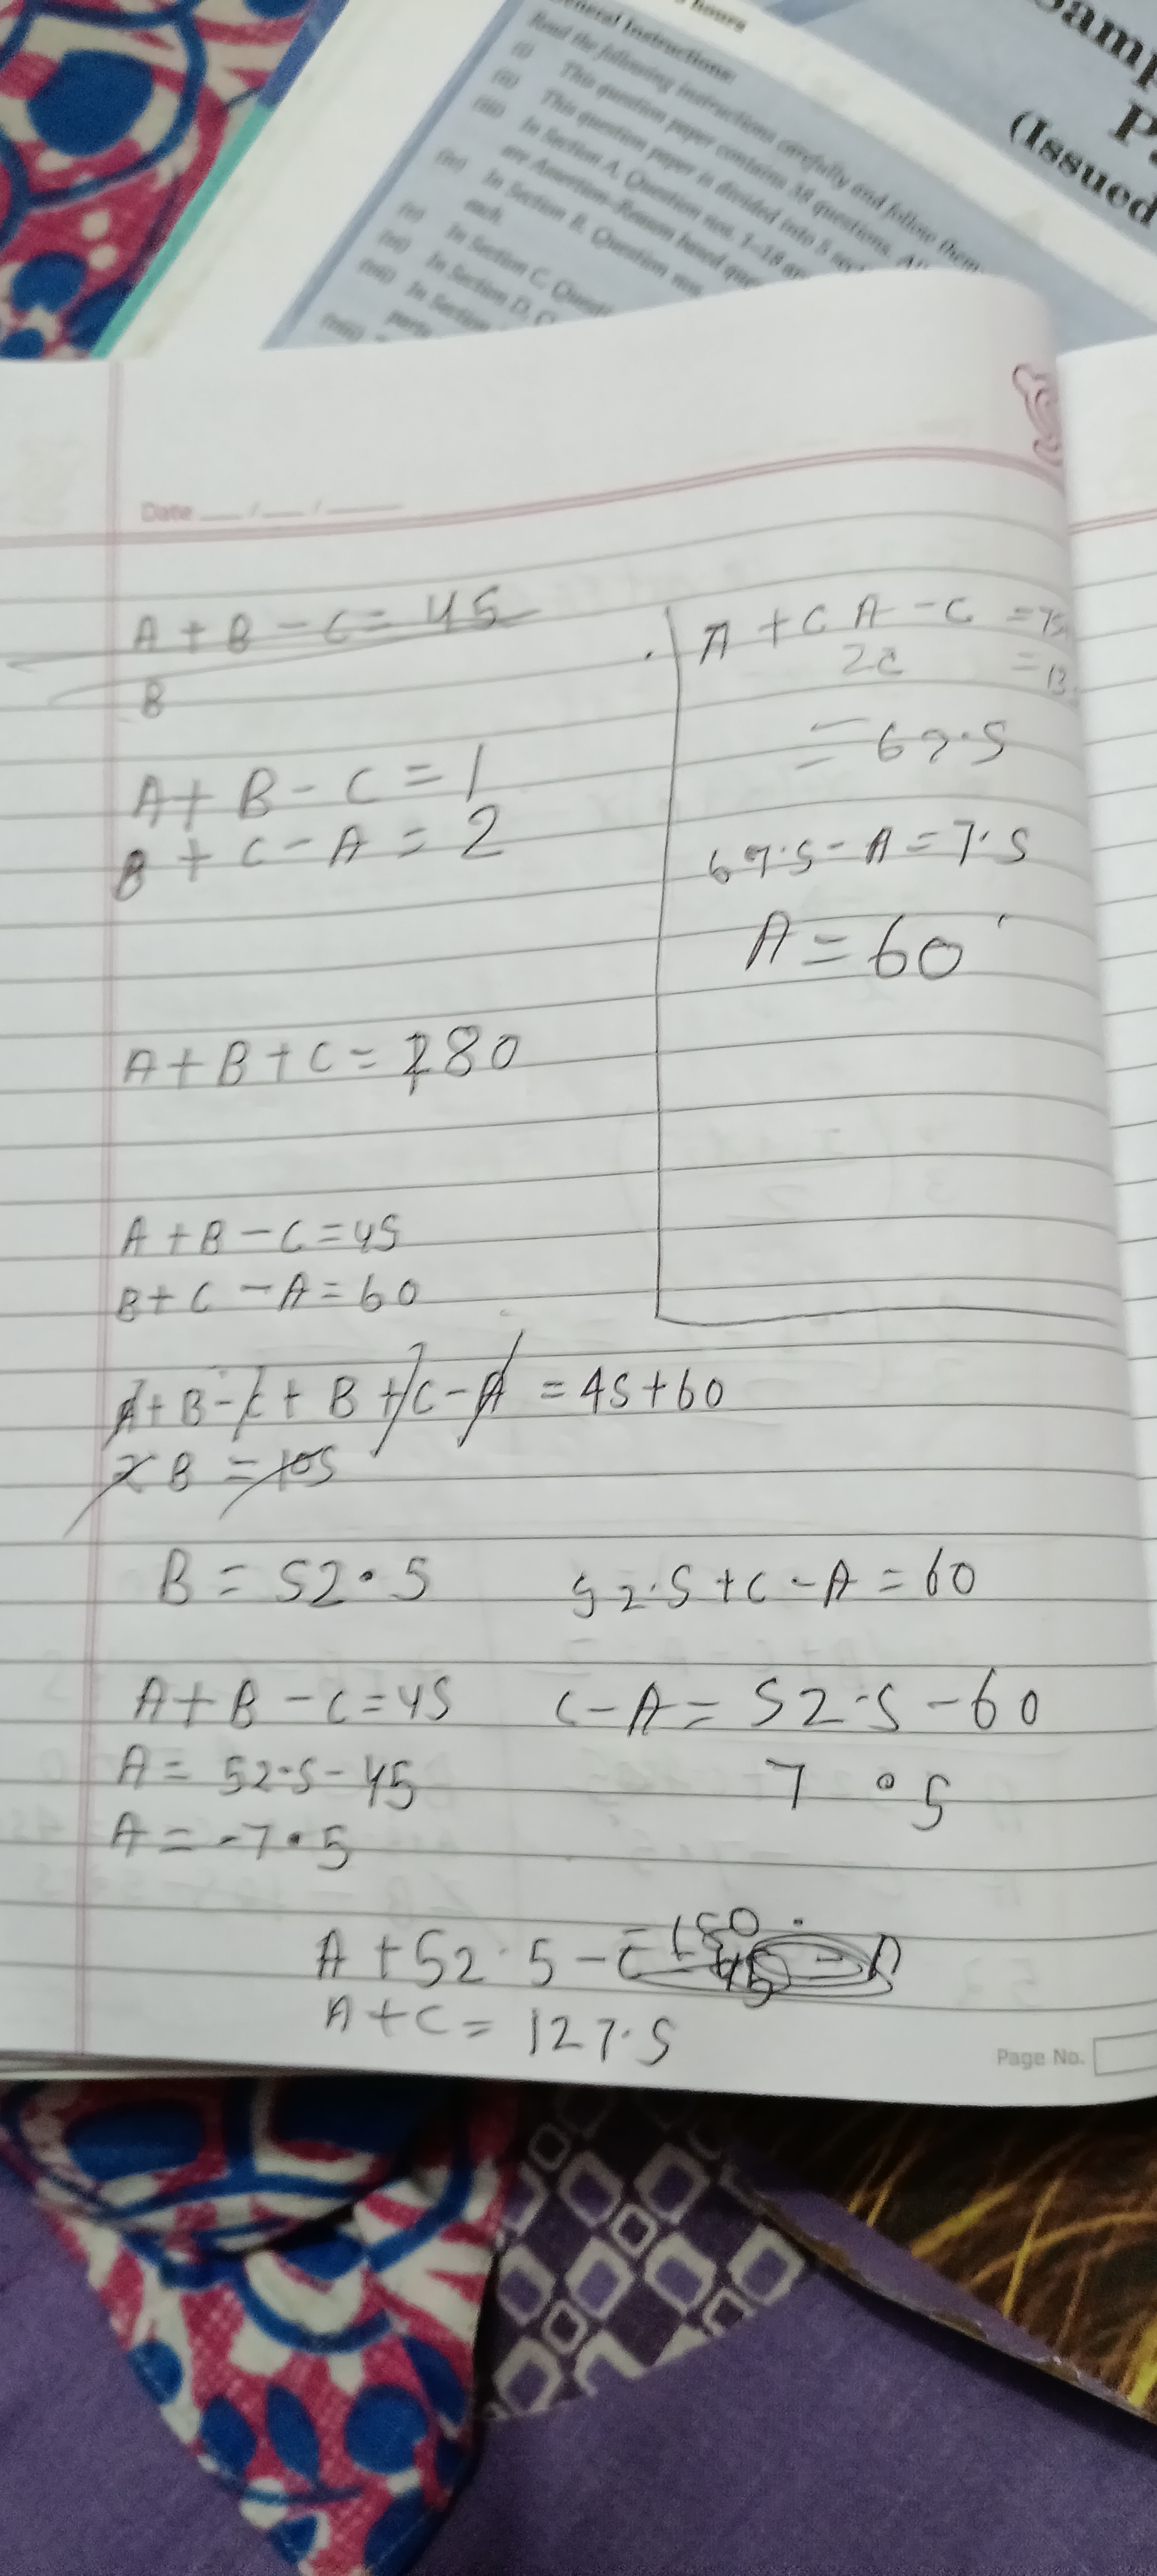 hours
General Instructions:
Read the following instructions carefully and follow them
(i) This question paper contains 38 questions. All
(ii) This question paper is divided into 5 sect
(iii) In Section A, Question nos. 1-18 ar
are Assertion-Reason based que
(iv) In Section B, Question nos.
each.
(v) In Section C, Questi
(vi) In Section D, Q
(vii) In Section
parts
(viii)
Samp
Pa
(Issued
Date
A + B - C = 45
B
A + B - C = 1
B + C - A = 2
A + B + C = 180
A + B - C = 45
B + C - A = 60
A + B - C + B + C - A = 45 + 60
2B = 105
B = 52.5
A + B - C = 45
A = 52.5 - 45
A = -7.5
52.5 + C - A = 60
C - A = 52.5 - 60
7.5
A + 52.5 - C 180
A + C = 127.5
A + C A - C = 
2C = 13
= 67.5
67.5 - A = 7.5
A = 60
Page No.